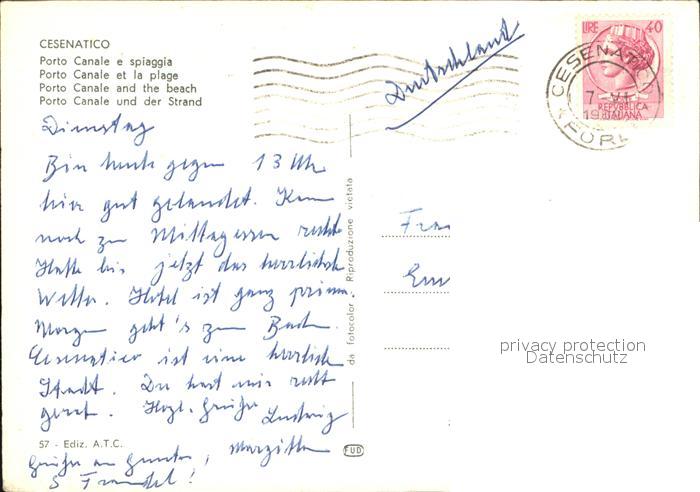 CESENATICO
Porto Canale e spiaggia
Porto Canale et la plage
Porto Canale and the beach
Porto Canale und der Strand
LIRE 40
REPVBBLICA
ITALIANA
CESENATICO
7-VI
19
FORLI
Deutschland
Dienstag
Bin heute gegen 13 Uhr
hier gut gelandet. Kam
noch zum Mittagessen recht
Hatte bis jetzt das herrlichste
Wetter. Hotel ist ganz prima.
Morgen geht's zum Baden.
Cesenatico ist eine herrliche
Stadt. Du hast mir recht
geraten. Herzl. Grüße Ludwig
Grüße an Gunter, Margitta
57 - Ediz. A.T.C.
da fotocolor Riproduzione vietata
FUD
privacy protection
Datenschutz